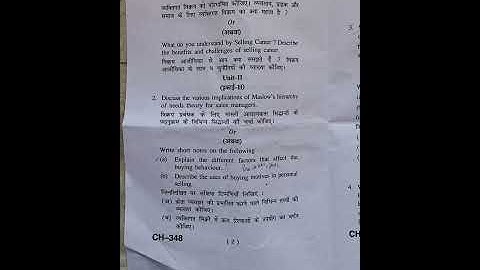 व्यक्तिगत विक्रय को परिभाषित कीजिए। व्यवसाय, ग्राहक और
समाज के लिए व्यक्तिगत विक्रय का क्या महत्व है ?
Or
(अथवा)
What do you understand by Selling Career ? Describe
the benefits and challenges of selling career.
विक्रय आजीविका से आप क्या समझते हैं ? विक्रय
आजीविका के लाभ व चुनौतियों की व्याख्या कीजिए।
Unit-II
(इकाई-II)
2. Discuss the various implications of Maslow's hierarchy
of needs theory for sales managers.
विक्रय प्रबंधक के लिए मास्लो आवश्यकता सिद्धान्तों के
पदानुक्रम के विभिन्न सिद्धान्तों की चर्चा कीजिए।
Or
(अथवा)
Write short notes on the following :
(a) Explain the different factors that affect the
buying behaviour.
(b) Describe the uses of buying motives in personal
selling.
निम्नलिखित पर संक्षिप्त टिप्पणियाँ लिखिए :
(अ) क्रेता व्यवहार को प्रभावित करने वाले विभिन्न तत्वों की
व्याख्या कीजिए।
(ब) व्यक्तिगत विक्रय में क्रय प्रेरणाओं के उपयोग का वर्णन
कीजिए।
CH-348
( 2 )
3.
4.